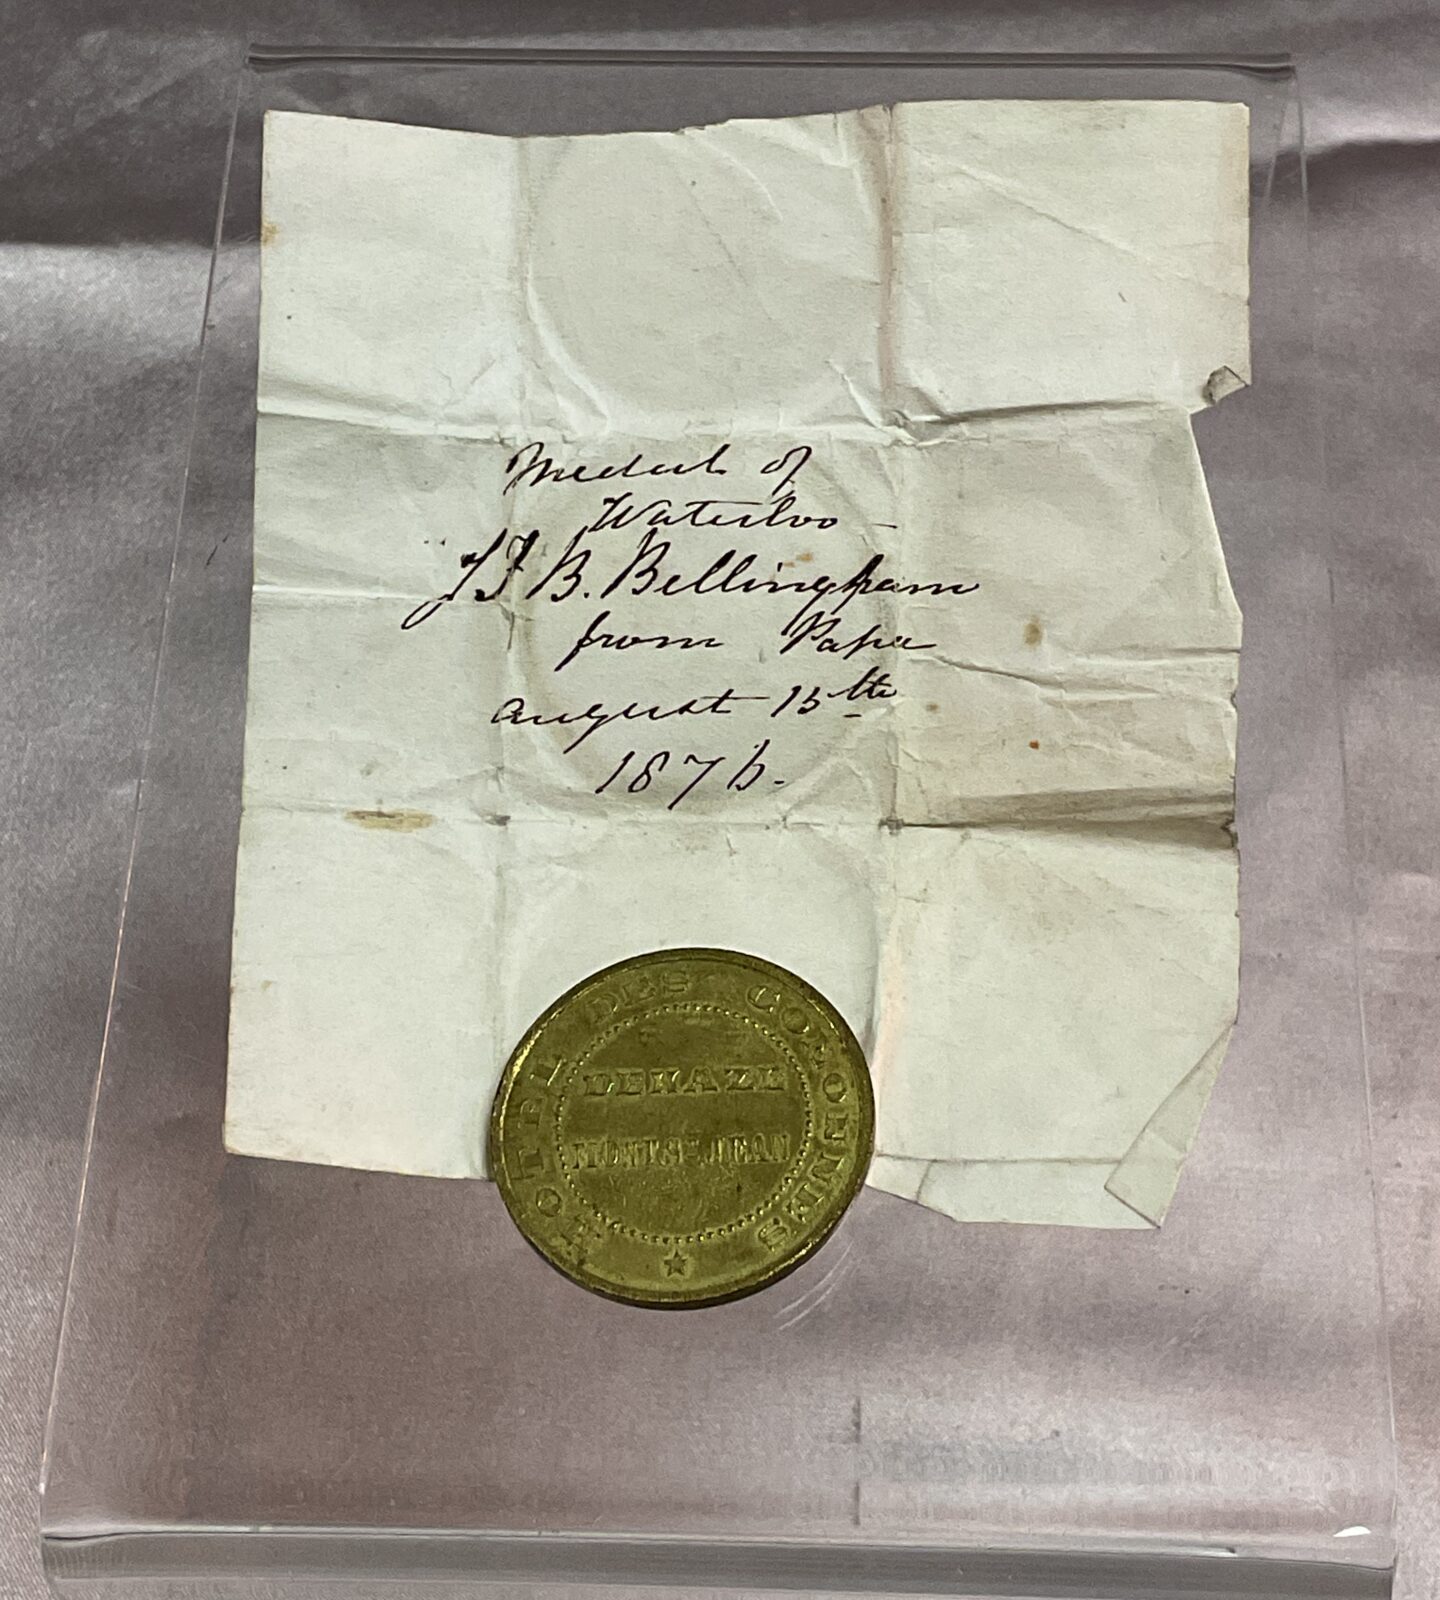 Medal of
Waterloo –
J F B. Bellingham
from Papa
august 15th
1876.
HOTEL DES COLONNES
DEHAZE
MONT St JEAN